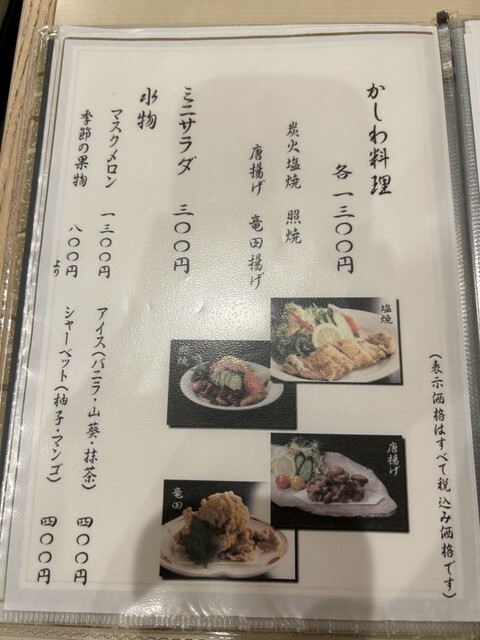 (表示価格はすべて税込み価格です)
かしわ料理
各一三〇〇円
炭火塩焼 照焼
唐揚げ 竜田揚げ
塩焼
照焼
唐揚げ
竜田
ミニサラダ 三〇〇円
水物
マスクメロン 一三〇〇円
季節の果物 八〇〇円より
アイス(バニラ・山葵・抹茶) 四〇〇円
シャーベット(柚子・マンゴ) 四〇〇円